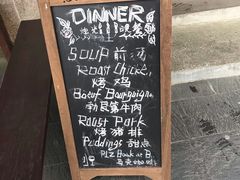 DINNER
晚餐
SOUP 前汤
Roast Chicken
烤鸡
Boeuf Bourguignon
勃艮第牛肉
Roast Pork
烤猪排
Puddings 甜点
PLZ Book at B